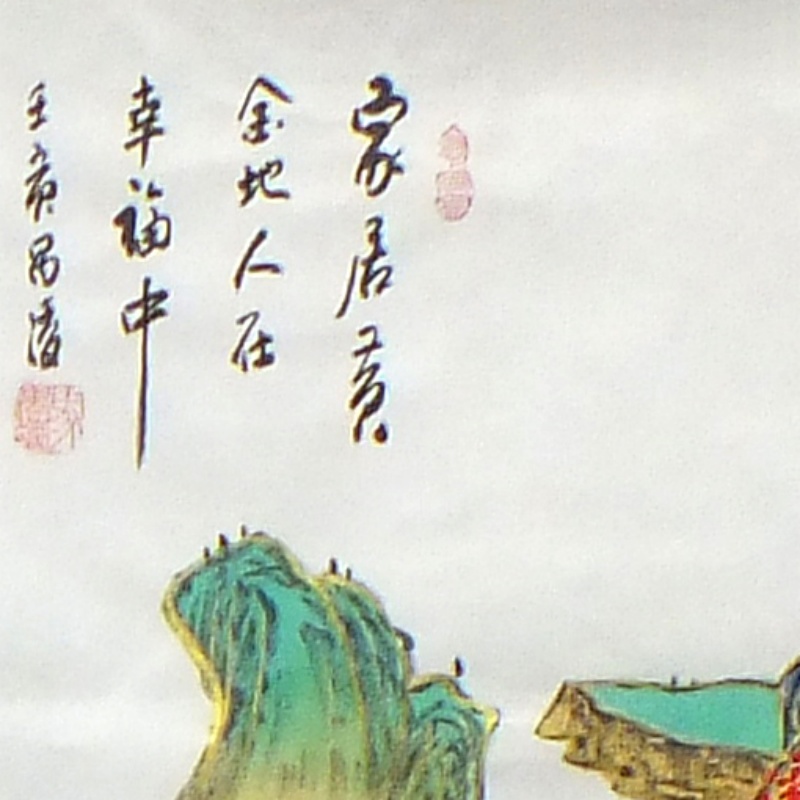 家居黄
金地人在
幸福中
壬寅昌清